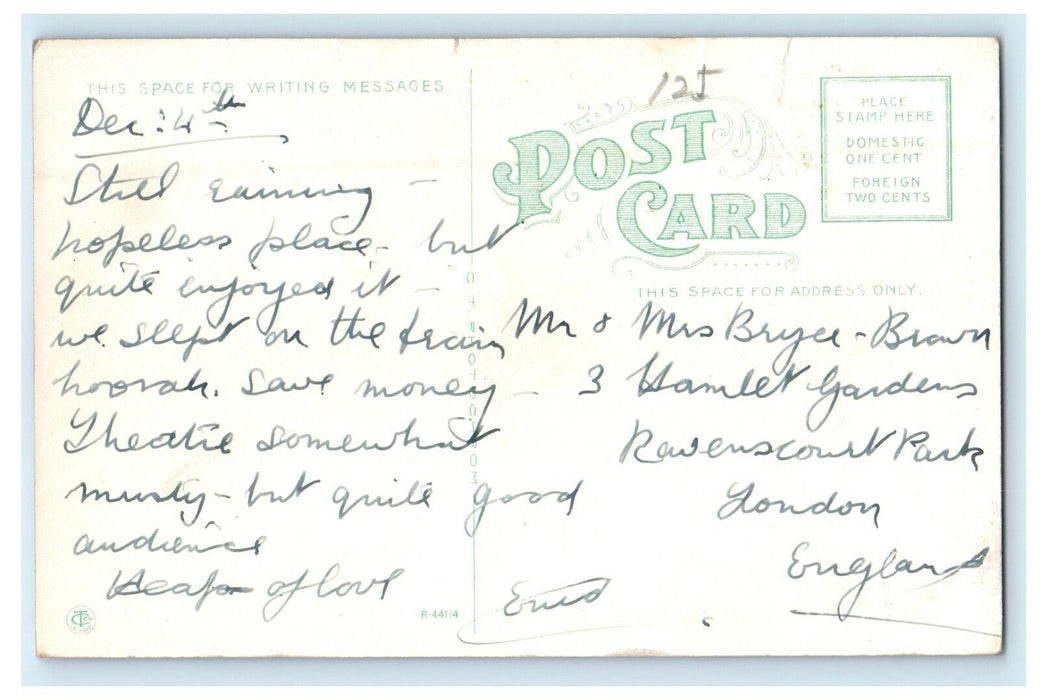 THIS SPACE FOR WRITING MESSAGES.
Dec: 4th
Still raining –
hopeless place – but
quite enjoyed it –
we slept on the train
hoorah. save money –
Theatre somewhat
musty – but quite good
audience
Heaps of love
Enid
R-44114
125
POST
CARD
PLACE
STAMP HERE
DOMESTIC
ONE CENT
FOREIGN
TWO CENTS
THIS SPACE FOR ADDRESS ONLY.
Mr & Mrs Bryce-Brown
3 Hamlet Gardens
Ravenscourt Park
London
England